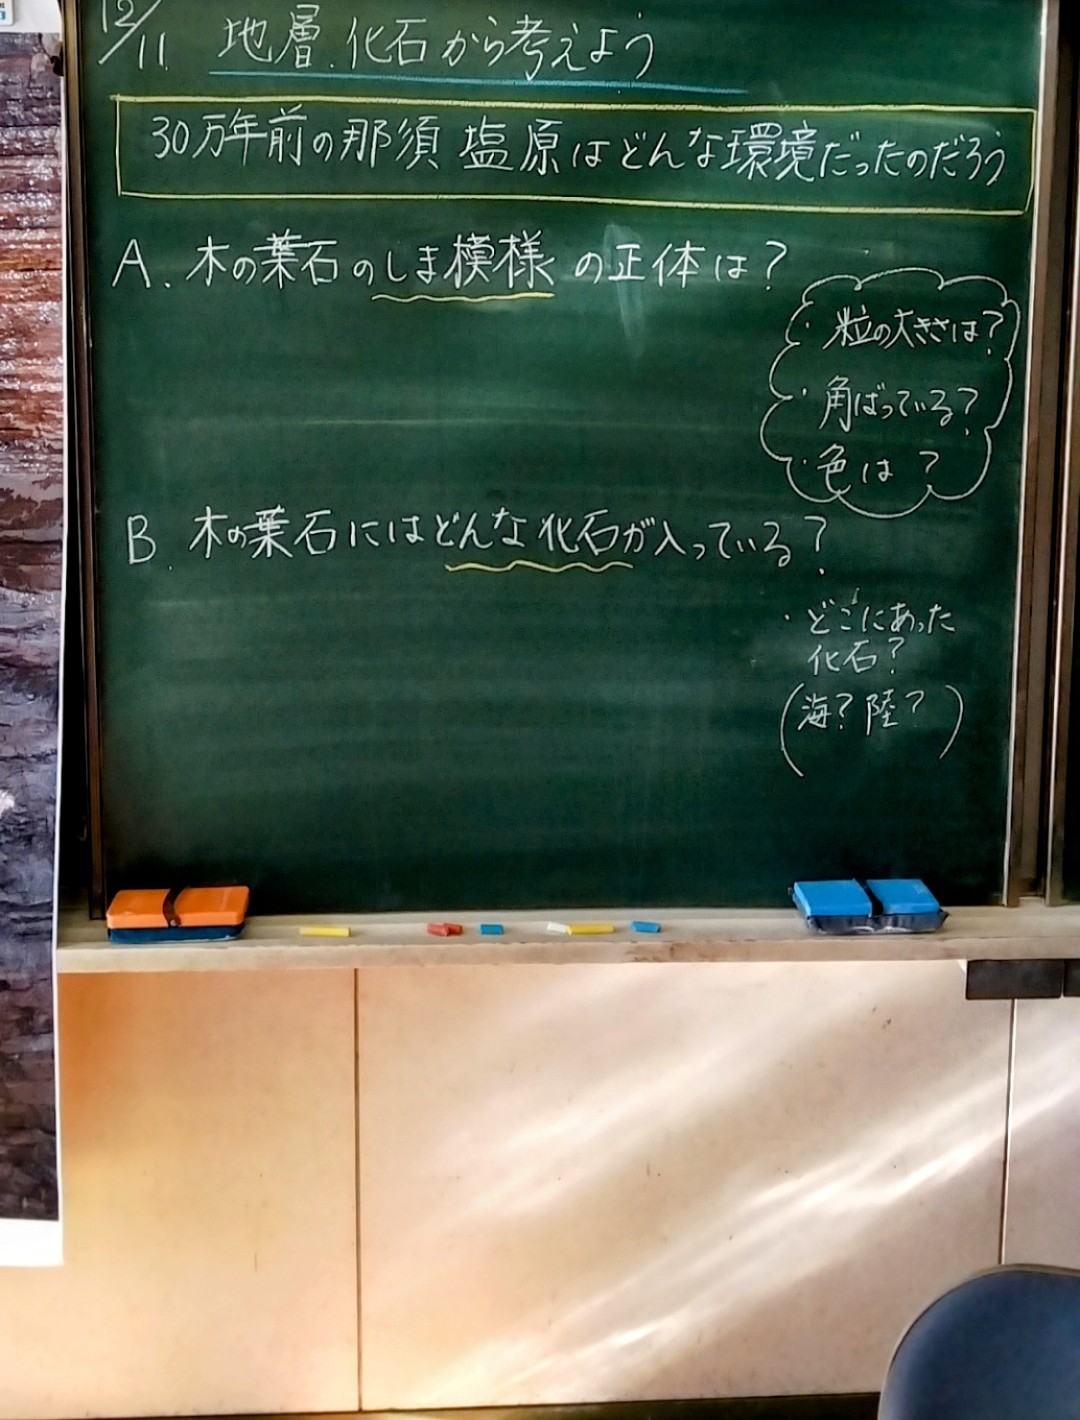 12/11 地層.化石から考えよう
30万年前の那須塩原はどんな環境だったのだろう
A. 木の葉石のしま模様の正体は?
・粒の大きさは?
・角ばっている?
・色は?
B. 木の葉石にはどんな化石が入っている?
・どこにあった
化石?
(海?陸?)